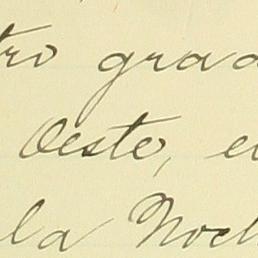 tro grad
Oeste, e
la Noch